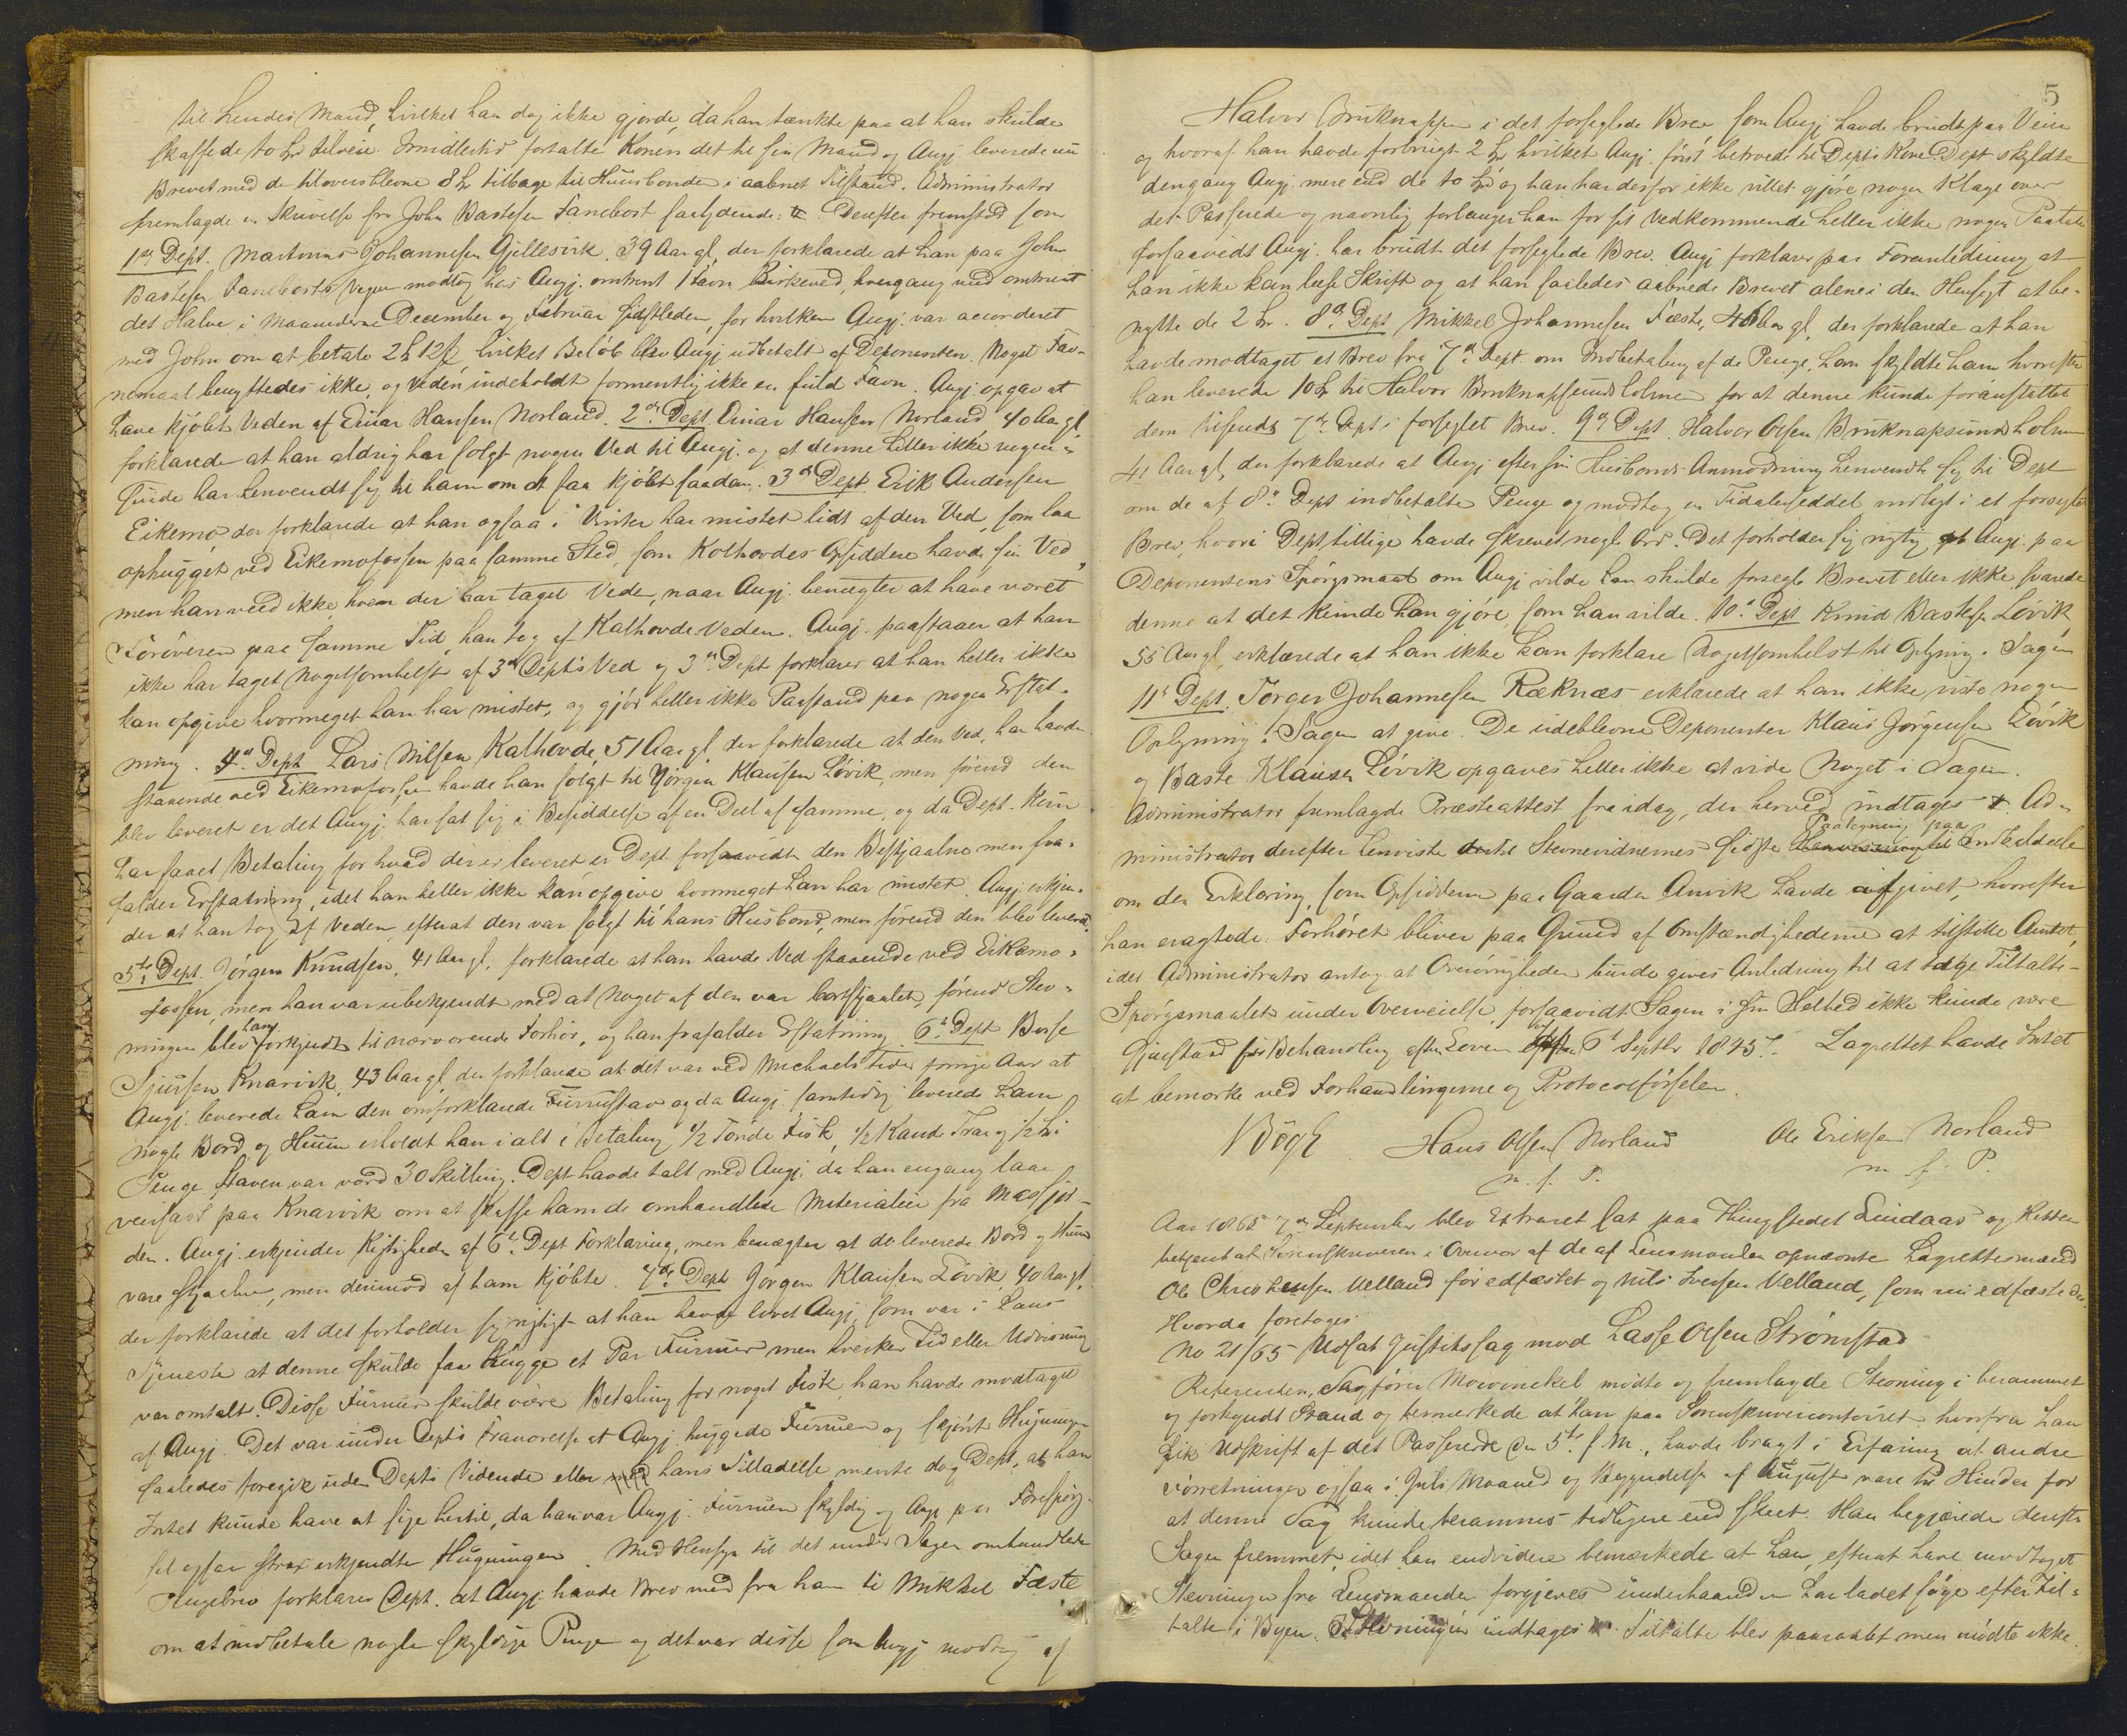 til hendes Mand, hvilket han dog ikke gjorde, da han tænkte paa at han skulde
skaffe de to Sp tilveie. Imidlertid fortalte Konen det til sin Mand og Angj leverede nu
Brevet med de tiloversblevne 8 Sp tilbage til Huusbonden i aabnet Tilstand. Administrator
fremlagde en Skrivelse fra John Bastesen Fanebost saalydende: Derefter fremstod som
1ste Dept. Martinus Johannesen Gjellesvik, 39 Aar gl, der forklarede at han paa John
Bastesen Fanebosts Vegne modtog hos Angj. omtrent 1 Favn Birkeved, hvergang med omtrent
det Halve i Maanederne December og Februar sidstleden, for hvilken Angj. var accorderet
med John om at betale 2 Sp 12 ß hvilket Beløb blev Angj udbetalt af Deponenten. Noget Fav-
nemaal benyttedes ikke, og Veden indeholdt formentlig ikke en fuld Favn. Angj. opgav at
have kjøbt Veden af Einar Hansen Norland. 2den Dept. Einar Hansen Norland, 40 Aar gl,
forklarede at han aldrig har solgt nogen Ved til Angj. og at denne heller ikke nogen-
sinde har henvendt sig til ham om at faa kjøbt saadan. 3die Dept Erik Andersen
Eikemo der forklarede at han ogsaa i Vinter har mistet lidt af den Ved, som laa
ophugget ved Eikemofossen paa samme Sted, som Kolhovdes Opsiddere havde sin Ved,
men han veed ikke, hvem der har taget Veden, naar Angj. benægter at have været
Røveren paa samme Tid, han tog af Kalhovde Veden. Angj. paastaaer at han
ikke har taget Nogetsomhelst af 3die Dept's Ved og 3die Dept forklarer at han heller ikke
kan opgive hvormeget han har mistet, og gjør heller ikke Paastand paa nogen Erstat-
ning. 4de Dept Lars Nilsen Kalhovde, 51 Aar gl. der forklarede at den Ved, han havde
staaende ved Eikemofossen havde han solgt til Jørgen Klausen Løvik, men førend den
blev leveret er det Angj. har sat sig i Besiddelse af en Deel af samme, og da Dept. kun
har faaet Betaling for hvad der er leveret er Dept. forsaavidt den Bestjaalne men fra-
falder Erstatning, idet han heller ikke kan opgive hvormeget han har mistet. Angj. erkjen-
der at han tog af Veden, efterat den var solgt til hans Husbond, men førend den blev leveret.
5te Dept. Jørgen Knudsen, 41 Aar gl. forklarede at han havde Ved staaende ved Eikemo-
fossen, men han var ubekjendt med at Noget af den var bortstjaalet, førend Stev-
ningen blev ham forkyndt til nærværende Forhør, og han frafalder Erstatning. 6te Dept Børse
Sjursen Knarvik, 43 Aar gl, der forklarede at det var ved Michaels Tider forrige Aar at
Angj. leverede ham den omforklarede Furustav og da Angj. samtidig leverede ham
nogle Bord og Huun erholdt han ialt i Betaling 1/2 Tønde Fisk, 1/2 Kande Tran og 1/2 Sp i
Penge. Staven var værd 30 Skilling. Dept havde talt med Angj. da han engang laae
veirfast paa Knarvik om at skaffe ham de omhandlede Materialier fra Masfjor-
den. Angj. erkjender Rigtigheden af 6te Dept Forklaring, men benægter at de leverede Bord og Huun
vare stjaalne, men derimod af ham kjøbte. 7de Dept Jørgen Klausen Løvik, 40 Aar gl,
der forklarede at det forholder sig rigtigt at han havde lovet Angj. som var i hans
Tjeneste at denne skulde faa hugge et Par Furuer men hverken Tid eller Udvisning
var omtalt. Disse Furuer skulde være Betaling for noget Fisk, han havde modtaget
af Angj. Det var under Dept's Fraværelse at Angj huggede Furuen og skjønt Hugningen
saaledes foregik uden Depts Vidende eller hans Tilladelse mente dog Dept, at han
Intet kunde have at sige hertil, da han var Angj. Furuen skyldig og Angj paa Forespørg-
sel ogsaa strax erkjendte Hugningen. Med Hensyn til det under Sagen omhandlede
Pengebrev forklarer Dept. at Angj. havde Brev med fra ham til Mikkel Fæste
om at indbetale nogle skyldige Penge og det var disse som Angj modtog af
5
Halvor Bruknappen i det forseglede Brev som Angj. havde brudt paa Veien
og hvoraf han havde forbrugt 2 Sp hvilket Angj. først betroede til Depts Kone. Dept skyldte
dengang Angj. mere end de to Sp og han har derfor ikke villet gjøre nogen Klage over
det Passerede og navnlig forlanger han for sit Vedkommende heller ikke nogen Paatale
forsaavidt Angj. har brudt det forseglede Brev. Angj forklarer paa Foranledning at
han ikke kan læse Skrift og at han saaledes aabnede Brevet alene i den Hensigt at be-
nytte de 2 Sp. 8de Dept Mikkel Johannesen Fæste, 46 Aar gl, der forklarede at han
havde modtaget et Brev fra 7de Dept om Indbetaling af de Penge, han skyldte ham hvorefter
han leverede 10 Sp til Halvor Bruknapsundsholmen for at denne kunde foranstaltet
dem tilsendt 7de Dept i forseglet Brev. 9de Dept Halvor Olsen Bruknapsundsholmen
41 Aar gl, der forklarede at Angj efter sin Husbonds Anmodning henvendte sig til Dept
om de af 8de Dept indbetalte Penge og modtog en Tidalerseddel indlagt i et forseglet
Brev, hvori Dept tillige havde skrevet nogle Ord. Det forholder sig rigtig at Angj. paa
Deponentens Spørgsmaal om Angj vilde han skulde forsegle Brevet eller ikke svarede
denne at det kunde han gjøre, som han vilde. 10de Dept Knud Bastesen Løvik,
55 Aar gl, erklærede at han ikke kan forklare Nogetsomhelst til Oplysning i Sagen
11te Dept. Torger Johannesen Røknæs erklærede at han ikke viste nogen
Oplysning i Sagen at give. De udeblevne Deponenter Klaus Jørgensen Løvik
og Baste Klausen Løvik opgaves heller ikke at vide Noget i Sagen.
Administrator fremlagde Præsteattest fra idag, der herved indtages. Ad-
ministrator derefter henviste til Stevnevidnernes sidste Paategning paa Indkaldelse
om den Erklæring, som Opsidderne paa Gaarden Anvik havde afgivet, hvorefter
han eragtede Forhøret bliver paa Grund af Omstændighederne at tilstille Amtet,
idet Administrator antog at Øvrigheden burde gives Anledning til at tage Tiltalts-
Spørgsmaalet under Overveielse, forsaavidt Sagen i sin Helhed ikke kunde være
Gjenstand for Behandling efter Loven af 6te Septbr 1845. Lagrettet havde Intet
at bemærke ved Forhandlingerne og Protocolførselen.
Bøgh Hans Olsen Norland Ole Eriksen Norland
m. f. P. m. f. P.
Aar 1865 7de September blev Extraret sat paa Thingstedet Lindaas og Retten
betjent af Sorenskriveren i Overvær af de af Lensmanden opnævnte Lagrettesmænd
Ole Christensen Velland før edfæstet og Nils Iversen Velland, som nu edfæstedes
Hvorda foretoges
No 21/65 Udsat Justitssag mod Lasse Olsen Strømstad
Referenten, Sagfører Mowinckel mødte og fremlagde Stevning i berammet
og forkyndt Stand og bemærkede at han paa Sorenskrivercontoiret hvorfra han
fik Udskrift af det Passerede den 5te f. M., havde bragt i Erfaring at andre
Forretninger ogsaa i Juli Maaned og Begyndelse af August vare til Hinder for
at denne Sag kunde berammes tidligere end skeet. Han begjærede derefter
Sagen fremmet, idet han endvidere bemærkede at han, efterat have modtaget
Stevningen fra Lensmanden, forgjeves underhaanden har ladet søge efter Til-
talte i Byen. Stevningen indtages. Tiltalte blev paaraabt men mødte ikke.